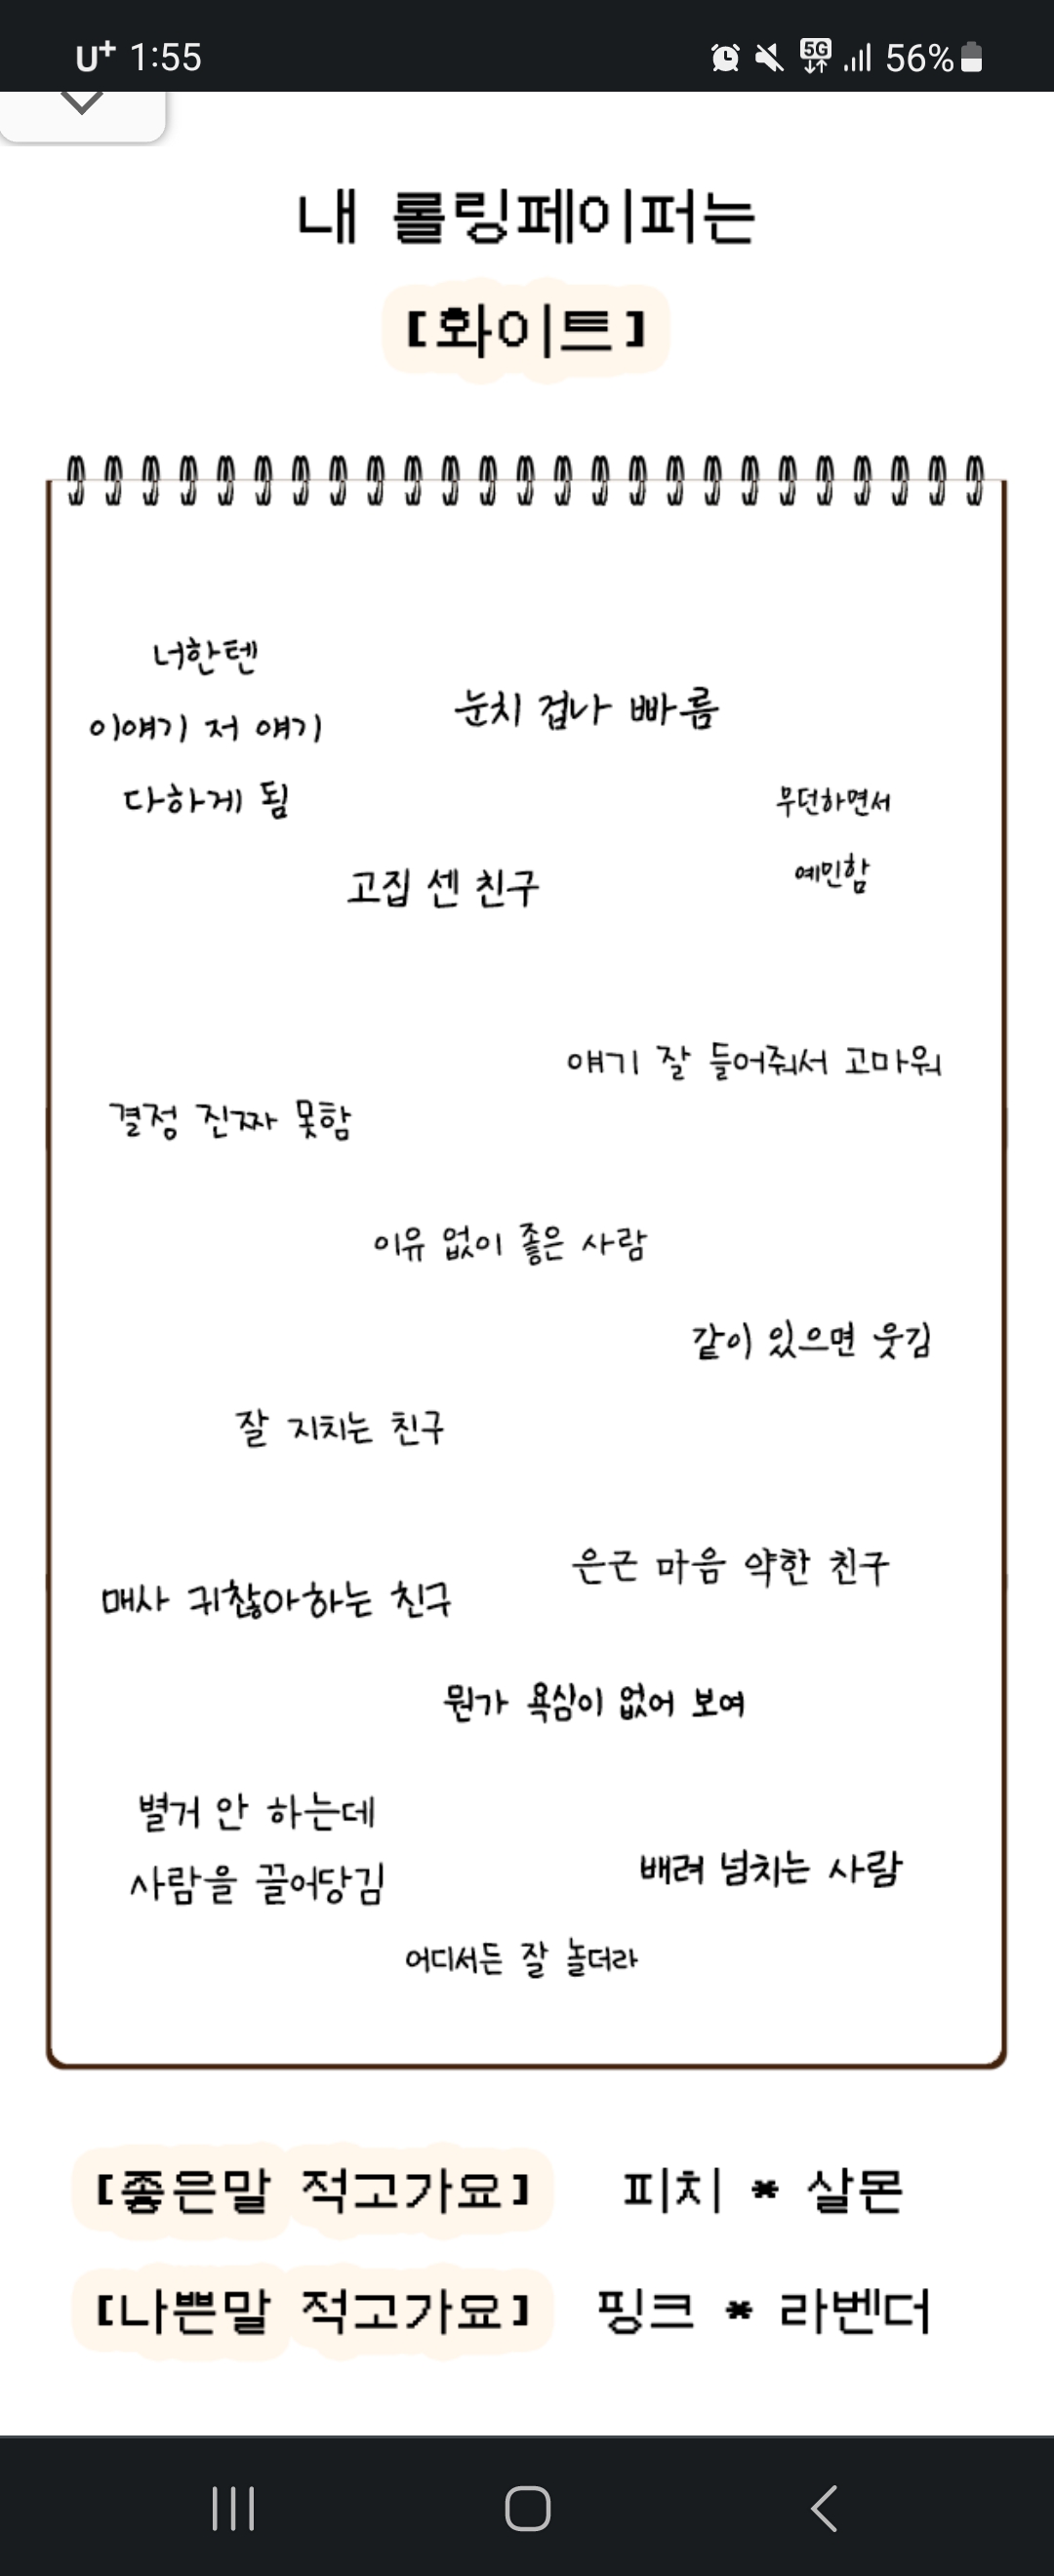 U+ 1:55 5G 56%
내 롤링페이퍼는
[화이트]
너한텐
이얘기 저 얘기
다하게 됨
눈치 겁나 빠름
무던하면서
예민함
고집 센 친구
얘기 잘 들어줘서 고마워
결정 진짜 못함
이유 없이 좋은 사람
같이 있으면 웃김
잘 지치는 친구
은근 마음 약한 친구
매사 귀찮아하는 친구
뭔가 욕심이 없어 보여
별거 안 하는데
사람을 끌어당김
배려 넘치는 사람
어디서든 잘 놀더라
[좋은말 적고가요] 피치 * 살몬
[나쁜말 적고가요] 핑크 * 라벤더